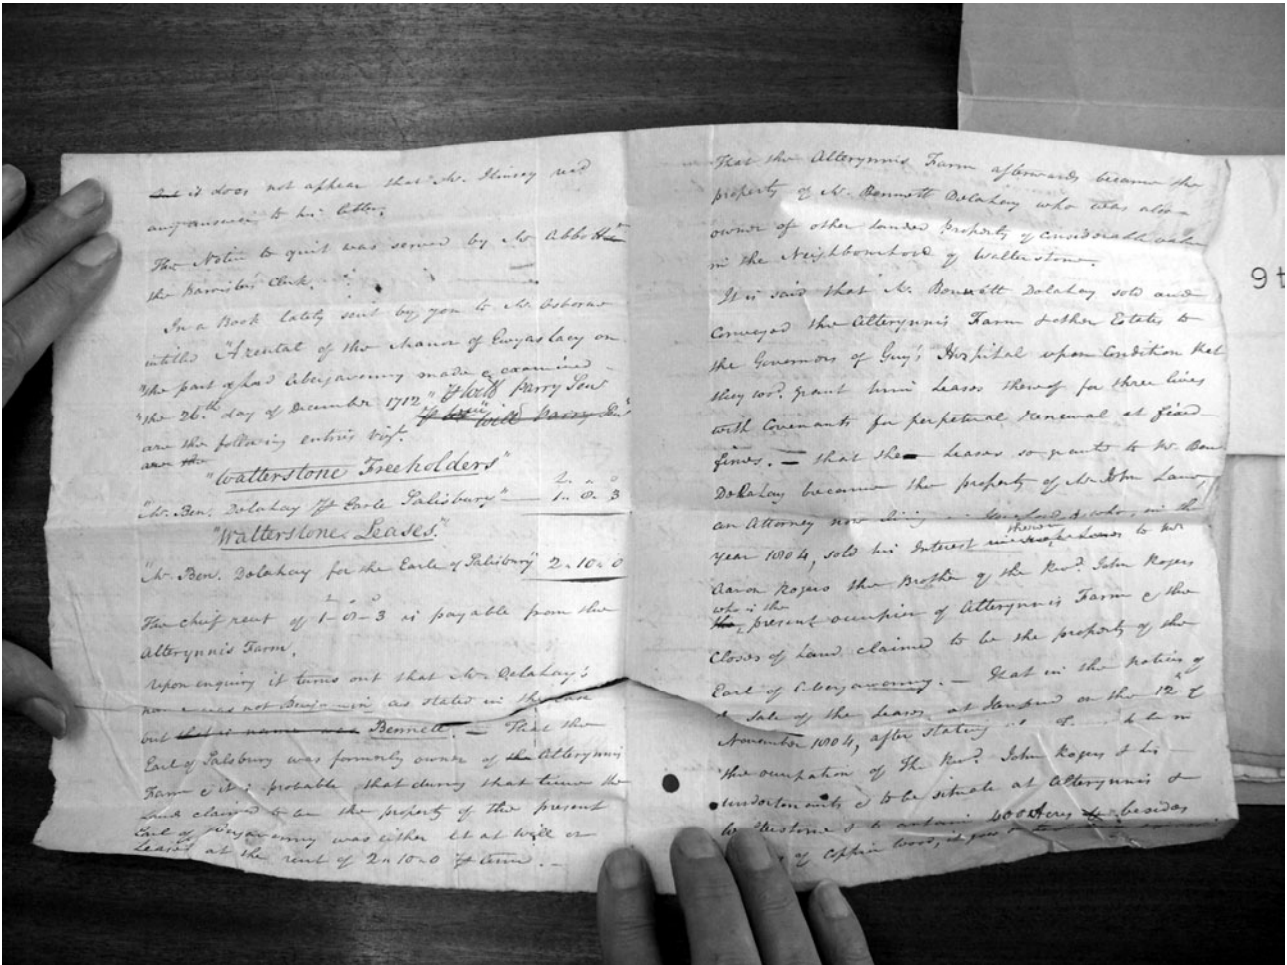 but it does not appear that Mr. recd
any answer to his letter.
The Notice to quit was served by Mr Abbott
the Barristers Clerk.
In a Book lately sent by you to Mr Osborne
intitled "A rental of the Manor of Ewyas lacy on
"the part of Lord Abergavenny made & examined
"the 26th day of December 1712" Willm Parry Senr
are the following entries vizt.
"Walterstone Freeholders"
"Mr. Ben. Delahay Earle Salisbury" — 1 - 0 - 3
"Walterstone Leases".
"Mr. Ben. Delahay for the Earle of Salisbury" 2 - 10 - 0
The chief rent of 1 - 0 - 3 is payable from the
Alterynnis Farm.
Upon enquiry it turns out that Mr. Delahay's
name was not Benjamin as stated in the case
but that is name was Bennett. — That the
Earl of Salsbury was formerly owner of the Alterynnis
Farm & it is probable that during that time the
Land claimed to be the property of the present
Earl of Abergavenny was either let at Will or
Leased at the rent of 2 - 10 - 0 —
That the Alterynnis Farm afterwards became the
property of Mr. Bennett Delahay who was also
owner of other landed Property of considerable value
in the Neighbourhood of Walterstone.
It is said that Mr. Bennett Delahay sold and
conveyed the Alterynnis Farm & other Estates to
the Governors of Guy's Hospital upon Condition that
they wod. grant him Leases thereof for three lives
with Covenants for perpetual renewal at fixed
fines. — that the Leases so granted to Mr. Ben
Delahay became the property of Mr. John Lane,
an Attorney now living who, in the
therein
year 1804, sold his Interest to Mr
Aaron Rogers the Brother of the Revd. John Rogers
who is the
the present occupier of Alterynnis Farm & the
Closes of Land claimed to be the property of the
Earl of Abergavenny. — That in the notices of
Sale of the Leases at on the 12th
November 1804, after stating to be in
the occupation of The Revd. John Rogers & his
undertenants & to be situate at Alterynnis &
Walterstone & to contain 400 Acres besides
of Coppice wood, it
94